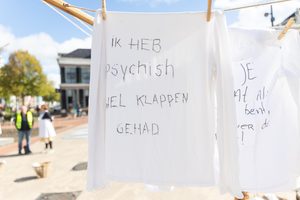 IK HEB
PSYCHISH
VEL KLAPPEN
GEHAD
JE